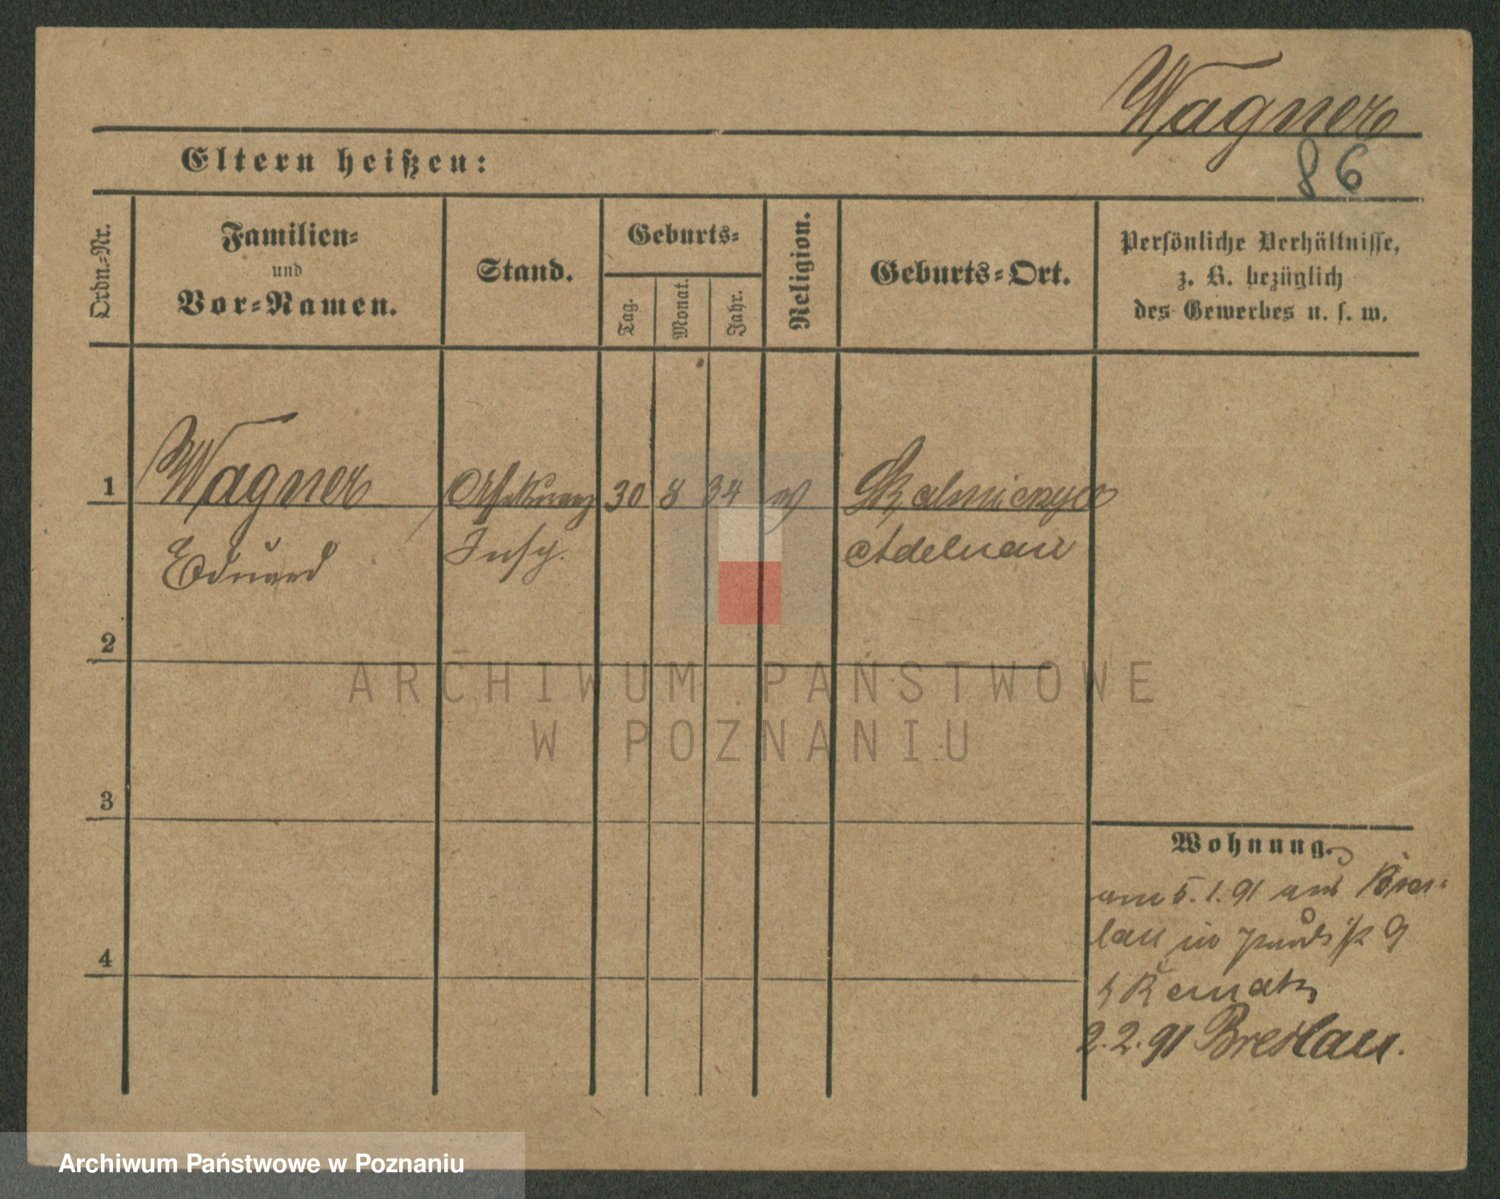 Wagner
86
Eltern heißen:
Ordn.-Nr.
Familien-
und
Vor-Namen.
Stand.
Geburts-
Tag.
Monat.
Jahr.
Religion.
Geburts-Ort.
Persönliche Verhältnisse,
z. B. bezüglich
des Gewerbes u. s. w.
1
Wagner
30
8
34
Eduard
Insp.
Adelnau
2
ARCHIWUM PAŃSTWOWE
W POZNANIU
3
4
Wohnung.
am 5. 1. 91 aus Bres-
lau in 9
2. 2. 91 Breslau.
Archiwum Państwowe w Poznaniu